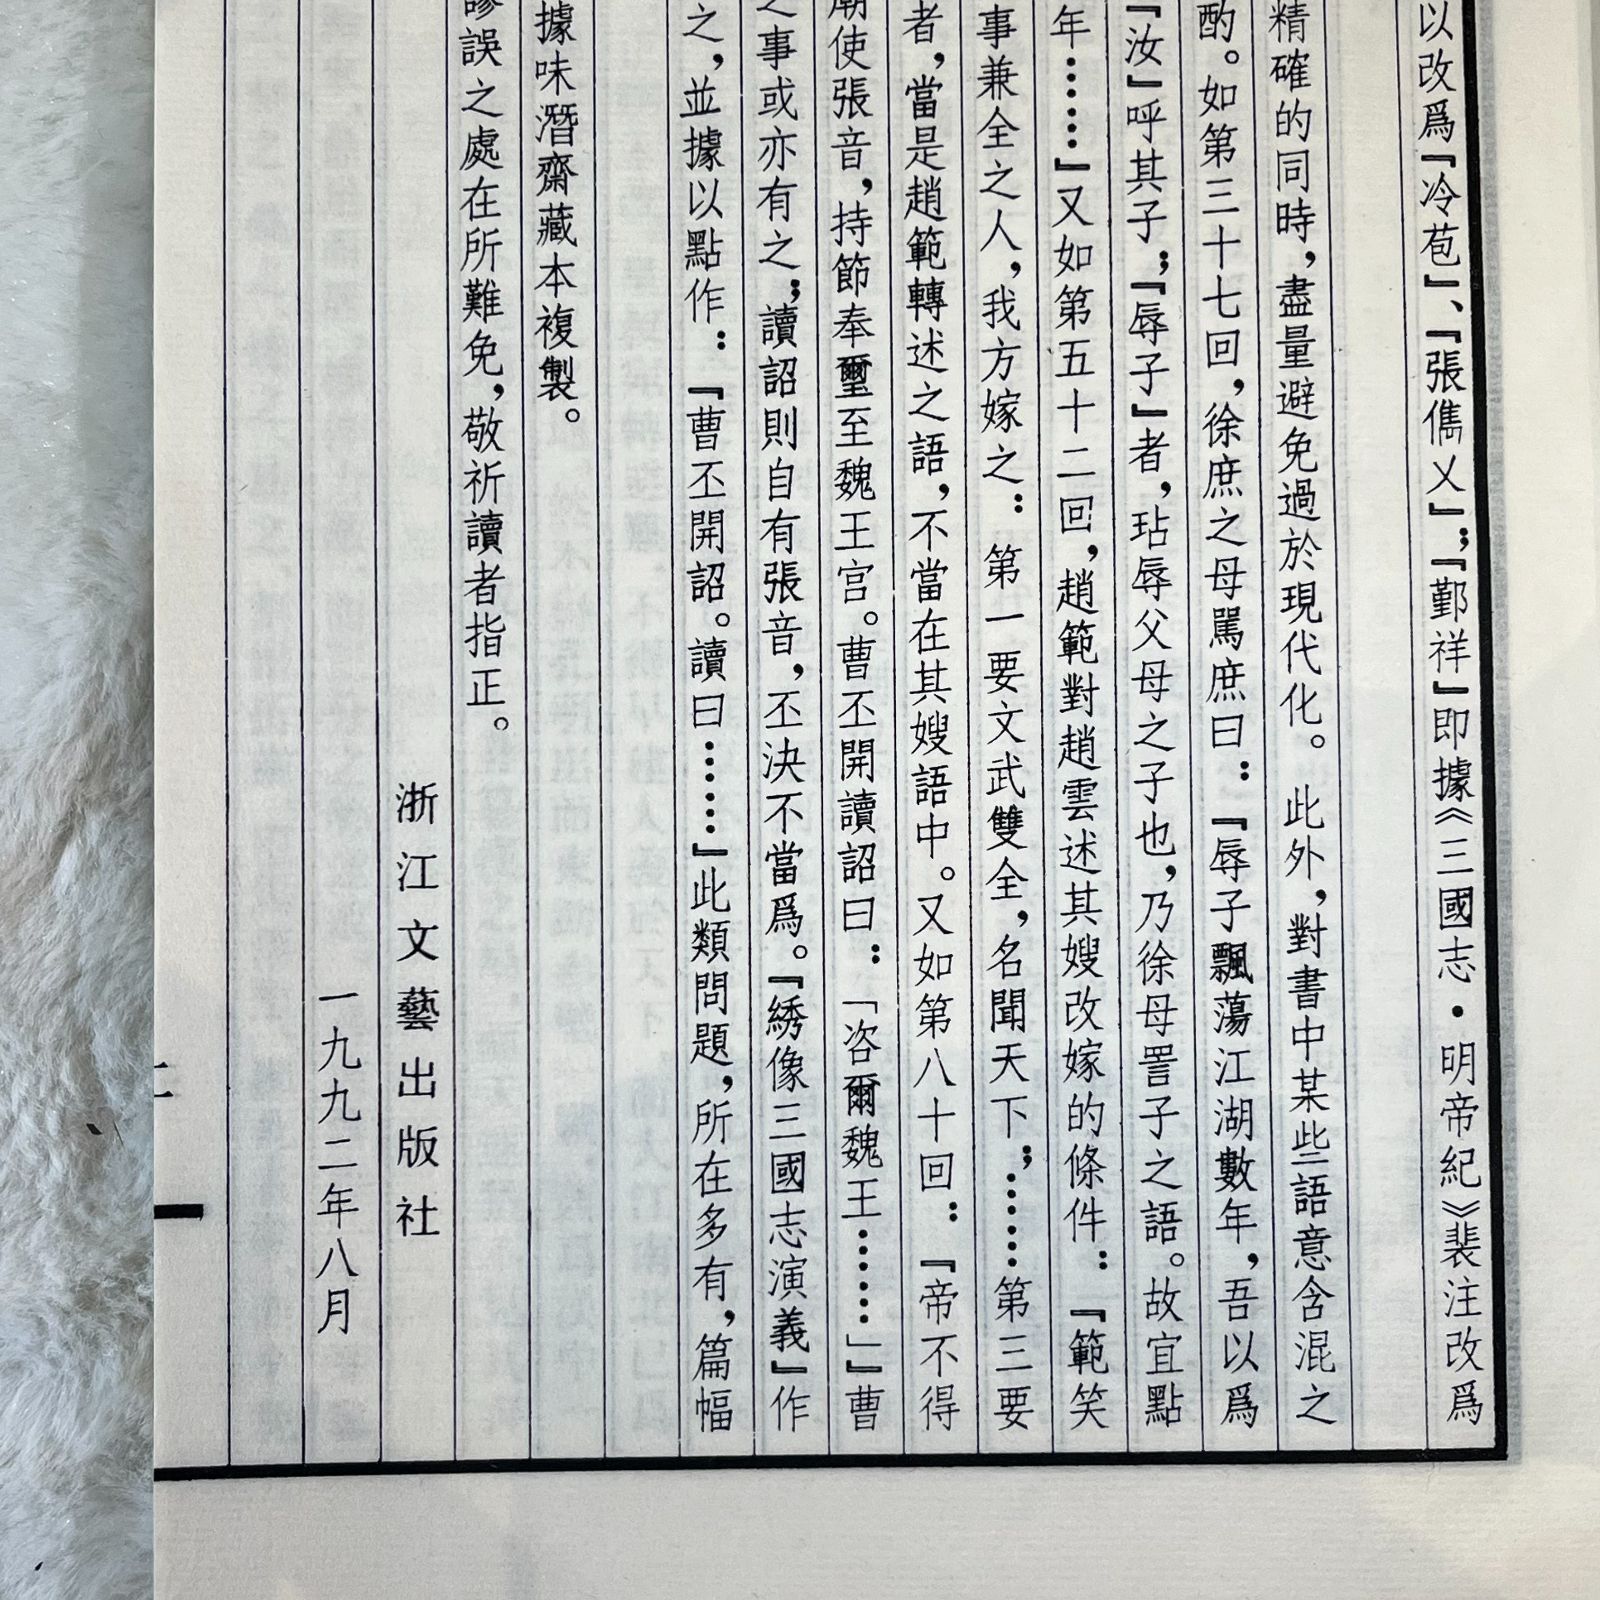 以改爲『冷苞』、『張儁乂』；『鄞祥』即據《三國志·明帝紀》裴注改爲
精確的同時，盡量避免過於現代化。此外，對書中某些語意含混之
酌。如第三十七回，徐庶之母駡庶曰：『辱子飄蕩江湖數年，吾以爲
『汝』呼其子；『辱子』者，玷辱父母之子也，乃徐母詈子之語。故宜點
年……』又如第五十二回，趙範對趙雲述其嫂改嫁的條件：『範笑
事兼全之人，我方嫁之：第一要文武雙全，名聞天下；……第三要
者，當是趙範轉述之語，不當在其嫂語中。又如第八十回：『帝不得
廟使張音，持節奉璽至魏王宮。曹丕開讀詔曰：「咨爾魏王……」』曹
之事或亦有之；讀詔則自有張音，丕決不當爲。『綉像三國志演義』作
之，並據以點作：『曹丕開詔。讀曰……』此類問題，所在多有，篇幅
據味潛齋藏本複製。
謬誤之處在所難免，敬祈讀者指正。
浙江文藝出版社
一九九二年八月